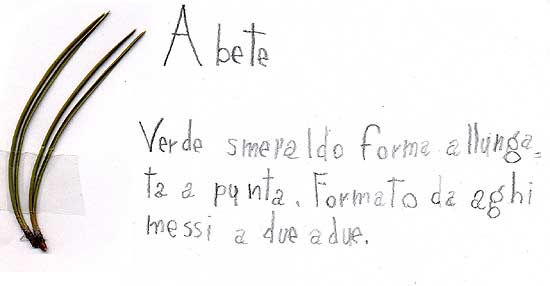 Abete
Verde smeraldo forma allunga=
ta a punta. Formato da aghi
messi a due a due.